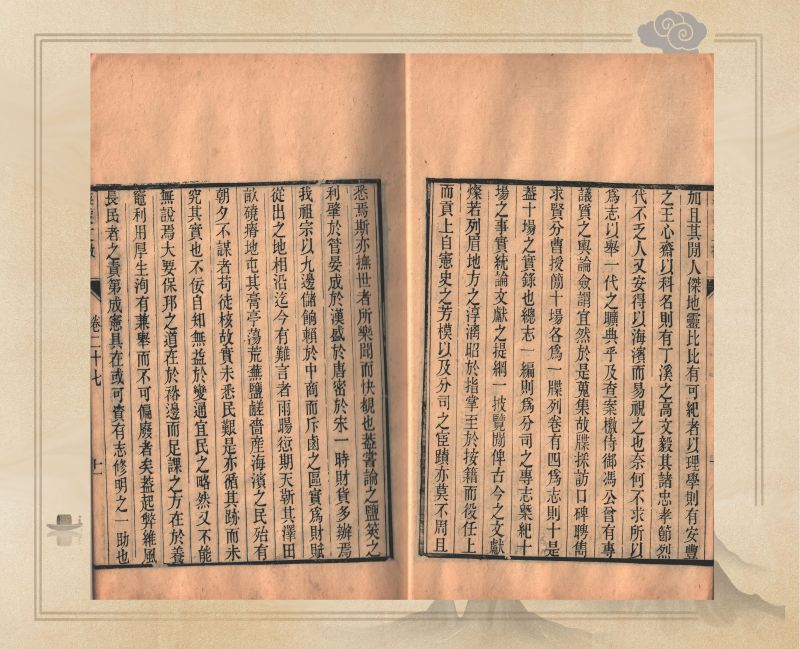 加且其閒人傑地靈比比有可紀者以理學則有安豐
之王心齋以科名則有丁溪之高文毅其諸忠孝節烈
代不乏人又安得以海濱而易視之也奈何不求所以
爲志以舉一代之曠典乎及查案檄侍御馮公曾有專
議質之輿論僉謂宜然於是蒐集故牒採訪口碑聘雋
求賢分曹授簡十場各爲一牒列卷有四爲志則十是
葢十場之實錄也總志一編則爲分司之專志槩紀十
場之事實統論文獻之提綱一披覽閒俾古今之文獻
燦若列眉地方之淳漓昭於指掌至於按籍而役任上
而貢上自憲史之芳模以及分司之臣蹟亦莫不周且
悉焉斯亦撫世者所樂聞而快覩也葢嘗論之鹽筴之
利肇於管晏成於漢盛於唐密於宋一時財貨多辦焉
我祖宗以九邊儲餉賴於中商而斥鹵之區實爲財賦
從出之地相沿迄今有難言者雨暘愆期天靳其澤田
畝磽瘠地屯其膏亭蕩荒蕪鹽鹺嗇産海濱之民殆有
朝夕不謀者苟徒核故實未悉民艱是亦循其跡而未
究其實也不佞自知無益於變通宜民之略然又不能
無說焉大要保邦之道在於裕邊而足課之方在於養
竈利用厚生洵有兼舉而不可偏廢者矣葢起弊維風
長民者之責第成憲具在或可資有志修明之一助也
卷二十七
十一